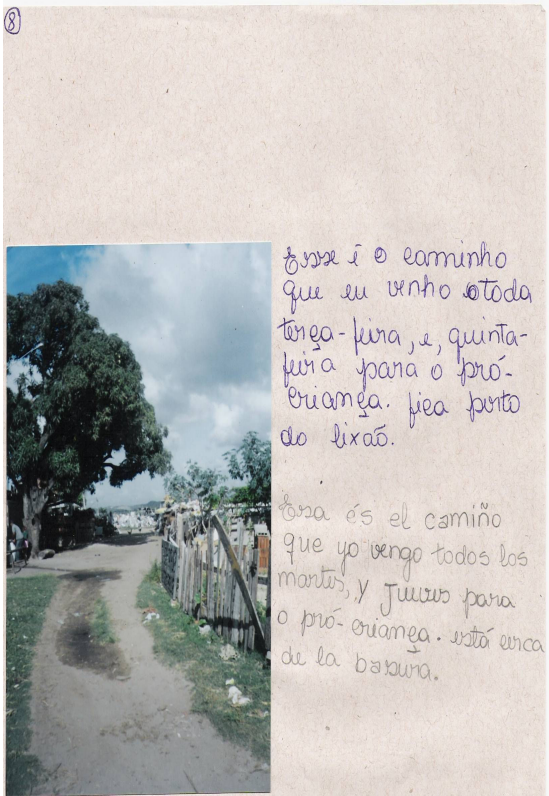 8
Esse é o caminho
que eu venho toda
terça-feira, e, quinta-
feira para o pró-
criança. fica perto
do lixaõ.
Esa és el camiño
que yo vengo todos los
martes, y Jueves para
o pró-criança. está cerca
de la basura.